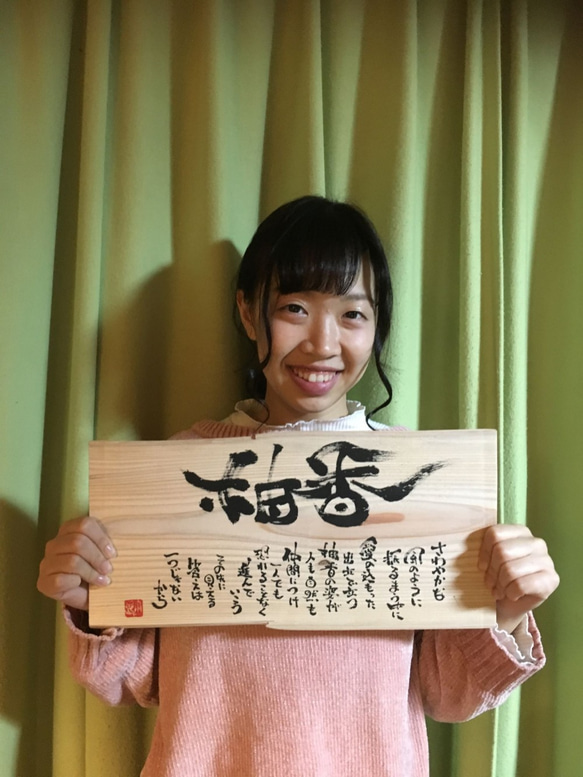 柚香
さわやかな
風のように
振るまう中に
愛の込もった
出世を放つ
柚香の姿が
人も自然も
仲間につけ
一人でも
恐れることなく
進んでいこう
この中に見える
答えは
一つじゃない
から